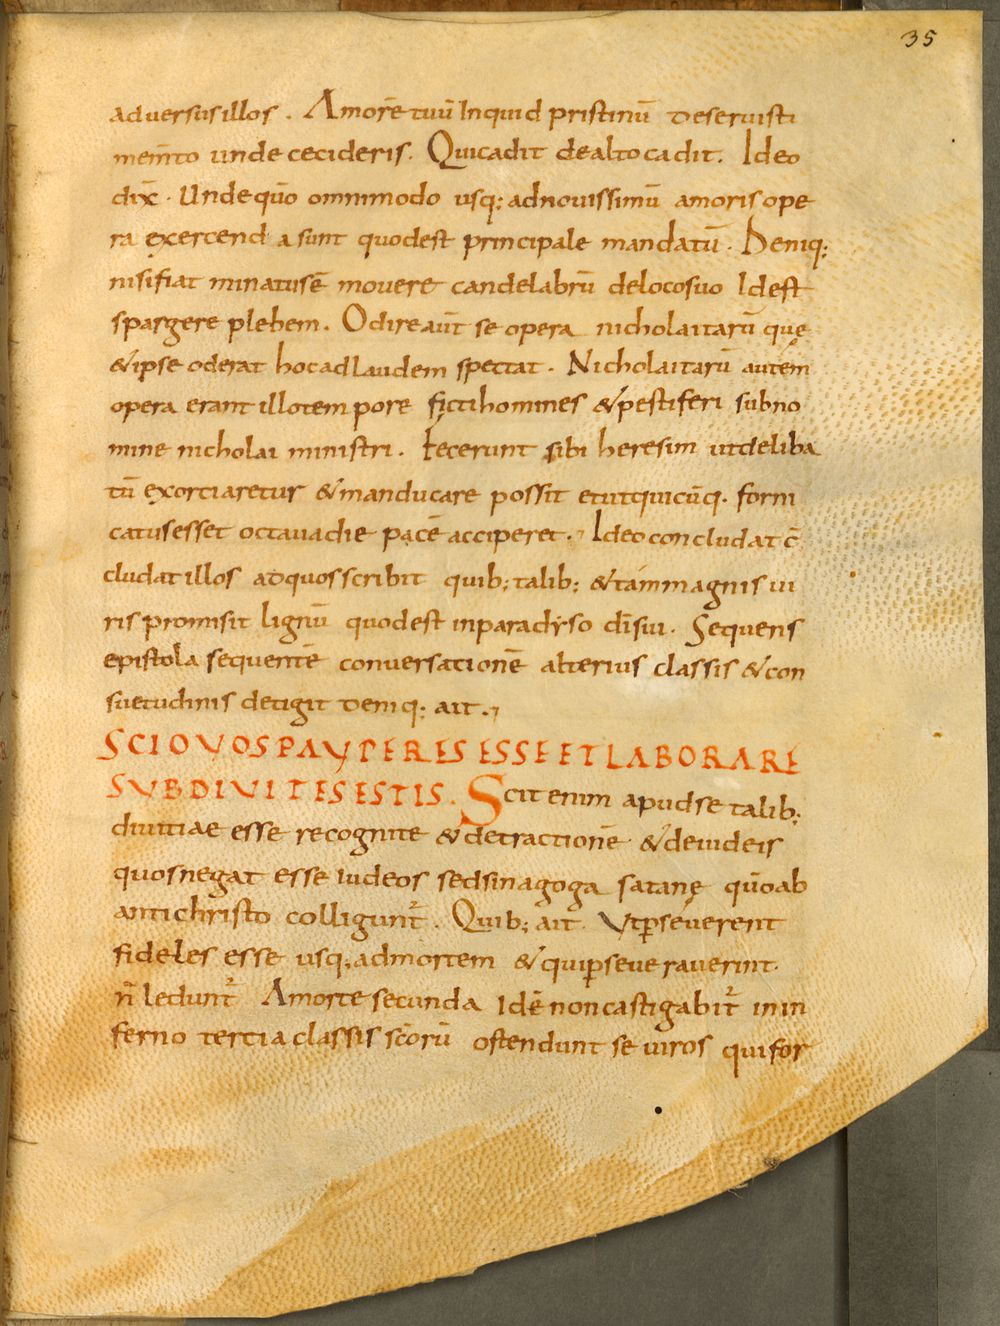 35
adversus illos. Amorē tuū Inquid pristinū deseruisti
memt̄o unde cecideris. Qui cadit de alto cadit. Ideo
dix̄. Unde quō omnimodo usq; ad nouissimū amoris ope
ra exercenda sunt quod est principale mandatū. Deniq;
nisi fiat minatus ē mouere candelabrū de loco suo Id est
spargere plebem. Odire aut̄ se opera nicholaitarū quę
& ipse oderat hoc ad laudem spectat. Nicholaitarū autem
opera erant illo tempore ficti homines & pestiferi sub no
mine nicholai ministri. Fecerunt sibi heresim ut deliba
tū exorciaretur & manducare possit et ut quicūq. forni
catus esset octaua die pacē acciperet. Ideo concludat c̄
cludat illos ad quos scribit quib; talib; & tam magnis ui
ris promisit lignū quod est in paradyso dī sui. Sequens
epistola sequentē conversationē alterius classis & con
suetudinis detigit deniq; ait.
SCIO VOS PAUPERES ESSE ET LABORARE
SUB DIVITES ESTIS. Scit enim apud se talib;
diuitiae esse recognite & detractionē & de iudeis
quos negat esse iudeos sed sinagoga satanę quō ab
antichristo colligunt̄. Quib; ait. Ut pseuerent
fideles esse usq; ad mortem & qui pseuerauerint.
n̄ ledunt̄ A morte secunda Idē non castigabit̄ in in
ferno tertia classis scōrū ostendunt se uiros qui for